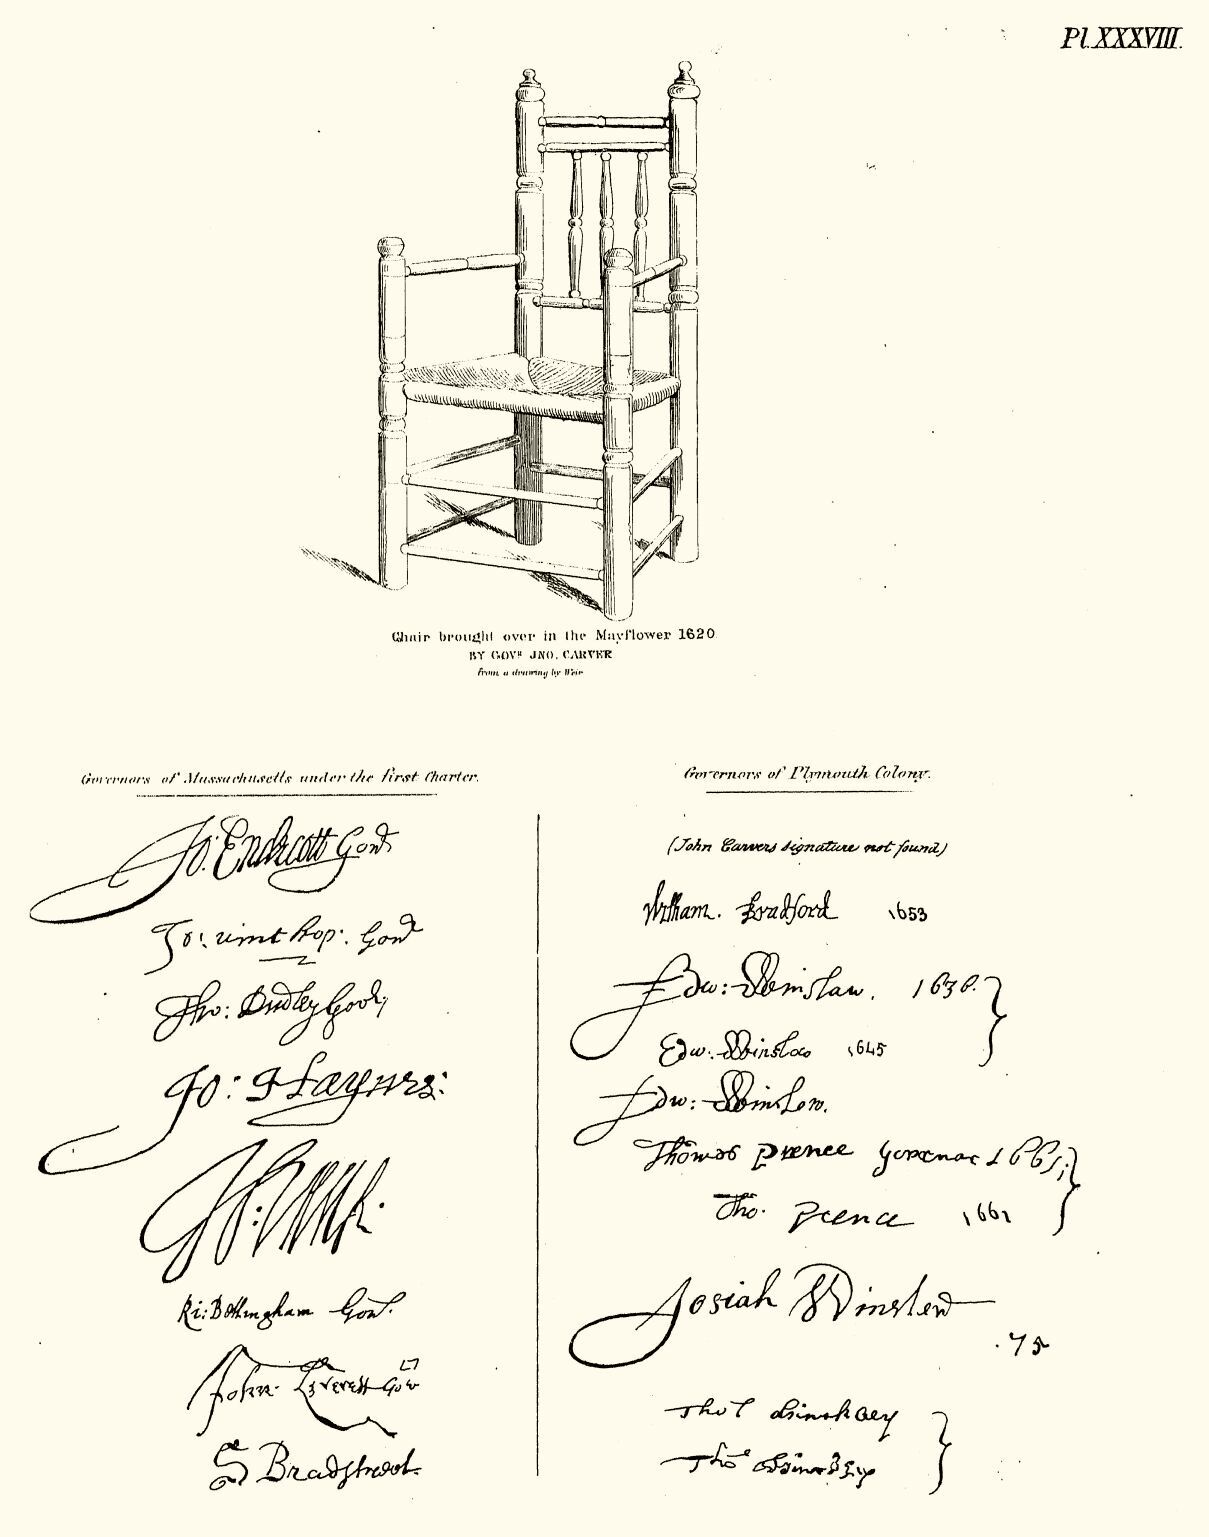 Pl. XXXVIII.
Chair brought over in the Mayflower 1620
BY GOVR JNO. CARVER
from a drawing by Weir
Governors of Massachusetts under the first Charter.
Jo: Endecott Govr
Jo: winthrop: Govr
Tho: Dudley Govr
Jo: Haynes:
Ri: Bellingham Govr.
John Leverett Govr
S Bradstreet
Governors of Plymouth Colony.
(John Carvers signature not found)
William Bradford 1653
Edw: Winslow. 1636.
Edw: Winslow 1645
Edw: Winslow.
Thomas Prence Governor 1661
Tho. Prence 1661
Josiah Winslow
75
Tho
Tho